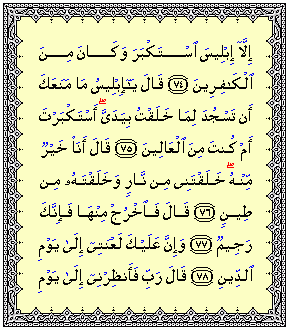 إِلَّآ إِبْلِيسَ ٱسْتَكْبَرَ وَكَانَ مِنَ
ٱلْكَٰفِرِينَ ﴿٧٤﴾ قَالَ يَٰٓإِبْلِيسُ مَا مَنَعَكَ
أَن تَسْجُدَ لِمَا خَلَقْتُ بِيَدَىَّ ۖ أَسْتَكْبَرْتَ
أَمْ كُنتَ مِنَ ٱلْعَالِينَ ﴿٧٥﴾ قَالَ أَنَا۠ خَيْرٌ
مِّنْهُ ۖ خَلَقْتَنِى مِن نَّارٍ وَخَلَقْتَهُۥ مِن
طِينٍ ﴿٧٦﴾ قَالَ فَٱخْرُجْ مِنْهَا فَإِنَّكَ
رَجِيمٌ ﴿٧٧﴾ وَإِنَّ عَلَيْكَ لَعْنَتِىٓ إِلَىٰ يَوْمِ
ٱلدِّينِ ﴿٧٨﴾ قَالَ رَبِّ فَأَنظِرْنِىٓ إِلَىٰ يَوْمِ